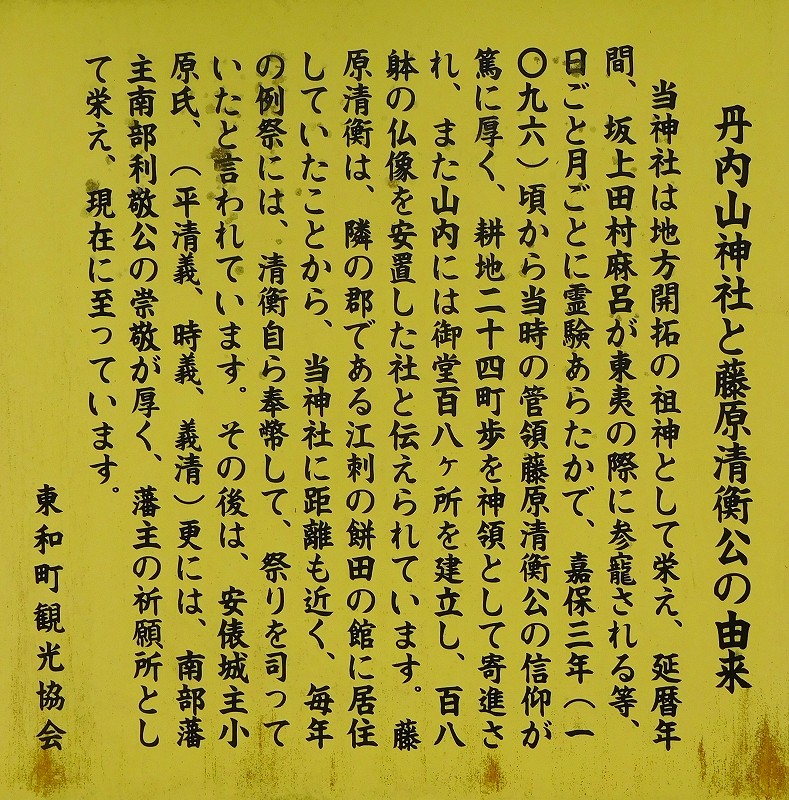 丹内山神社と藤原清衡公の由来
当神社は地方開拓の祖神として栄え、延暦年
間、坂上田村麻呂が東夷の際に参寵される等、
日ごと月ごとに霊験あらたかで、嘉保三年（一
〇九六）頃から当時の管領藤原清衡公の信仰が
篤に厚く、耕地二十四町歩を神領として寄進さ
れ、また山内には御堂百八ヶ所を建立し、百八
躰の仏像を安置した社と伝えられています。藤
原清衡は、隣の郡である江刺の餅田の館に居住
していたことから、当神社に距離も近く、毎年
の例祭には、清衡自ら奉幣して、祭りを司って
いたと言われています。その後は、安俵城主小
原氏、（平清義、時義、義清）更には、南部藩
主南部利敬公の崇敬が厚く、藩主の祈願所とし
て栄え、現在に至っています。
東和町観光協会